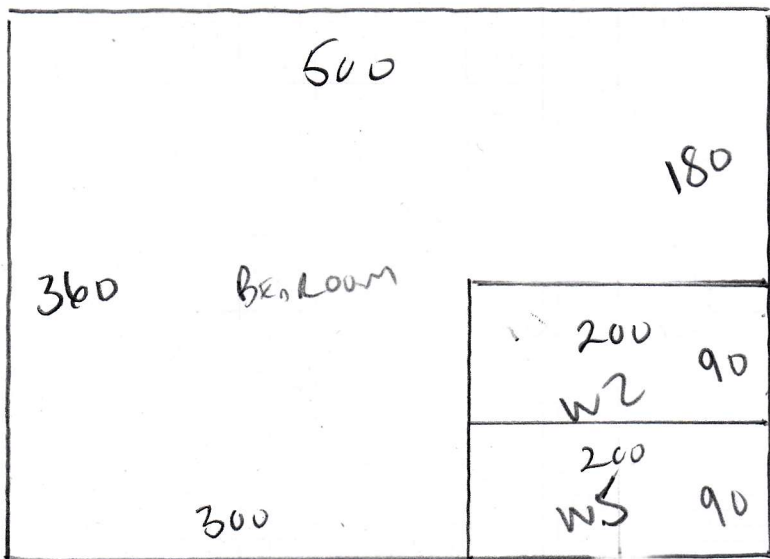 500
180
360 BEDROOM
200
90
W2
200
W5 90
300